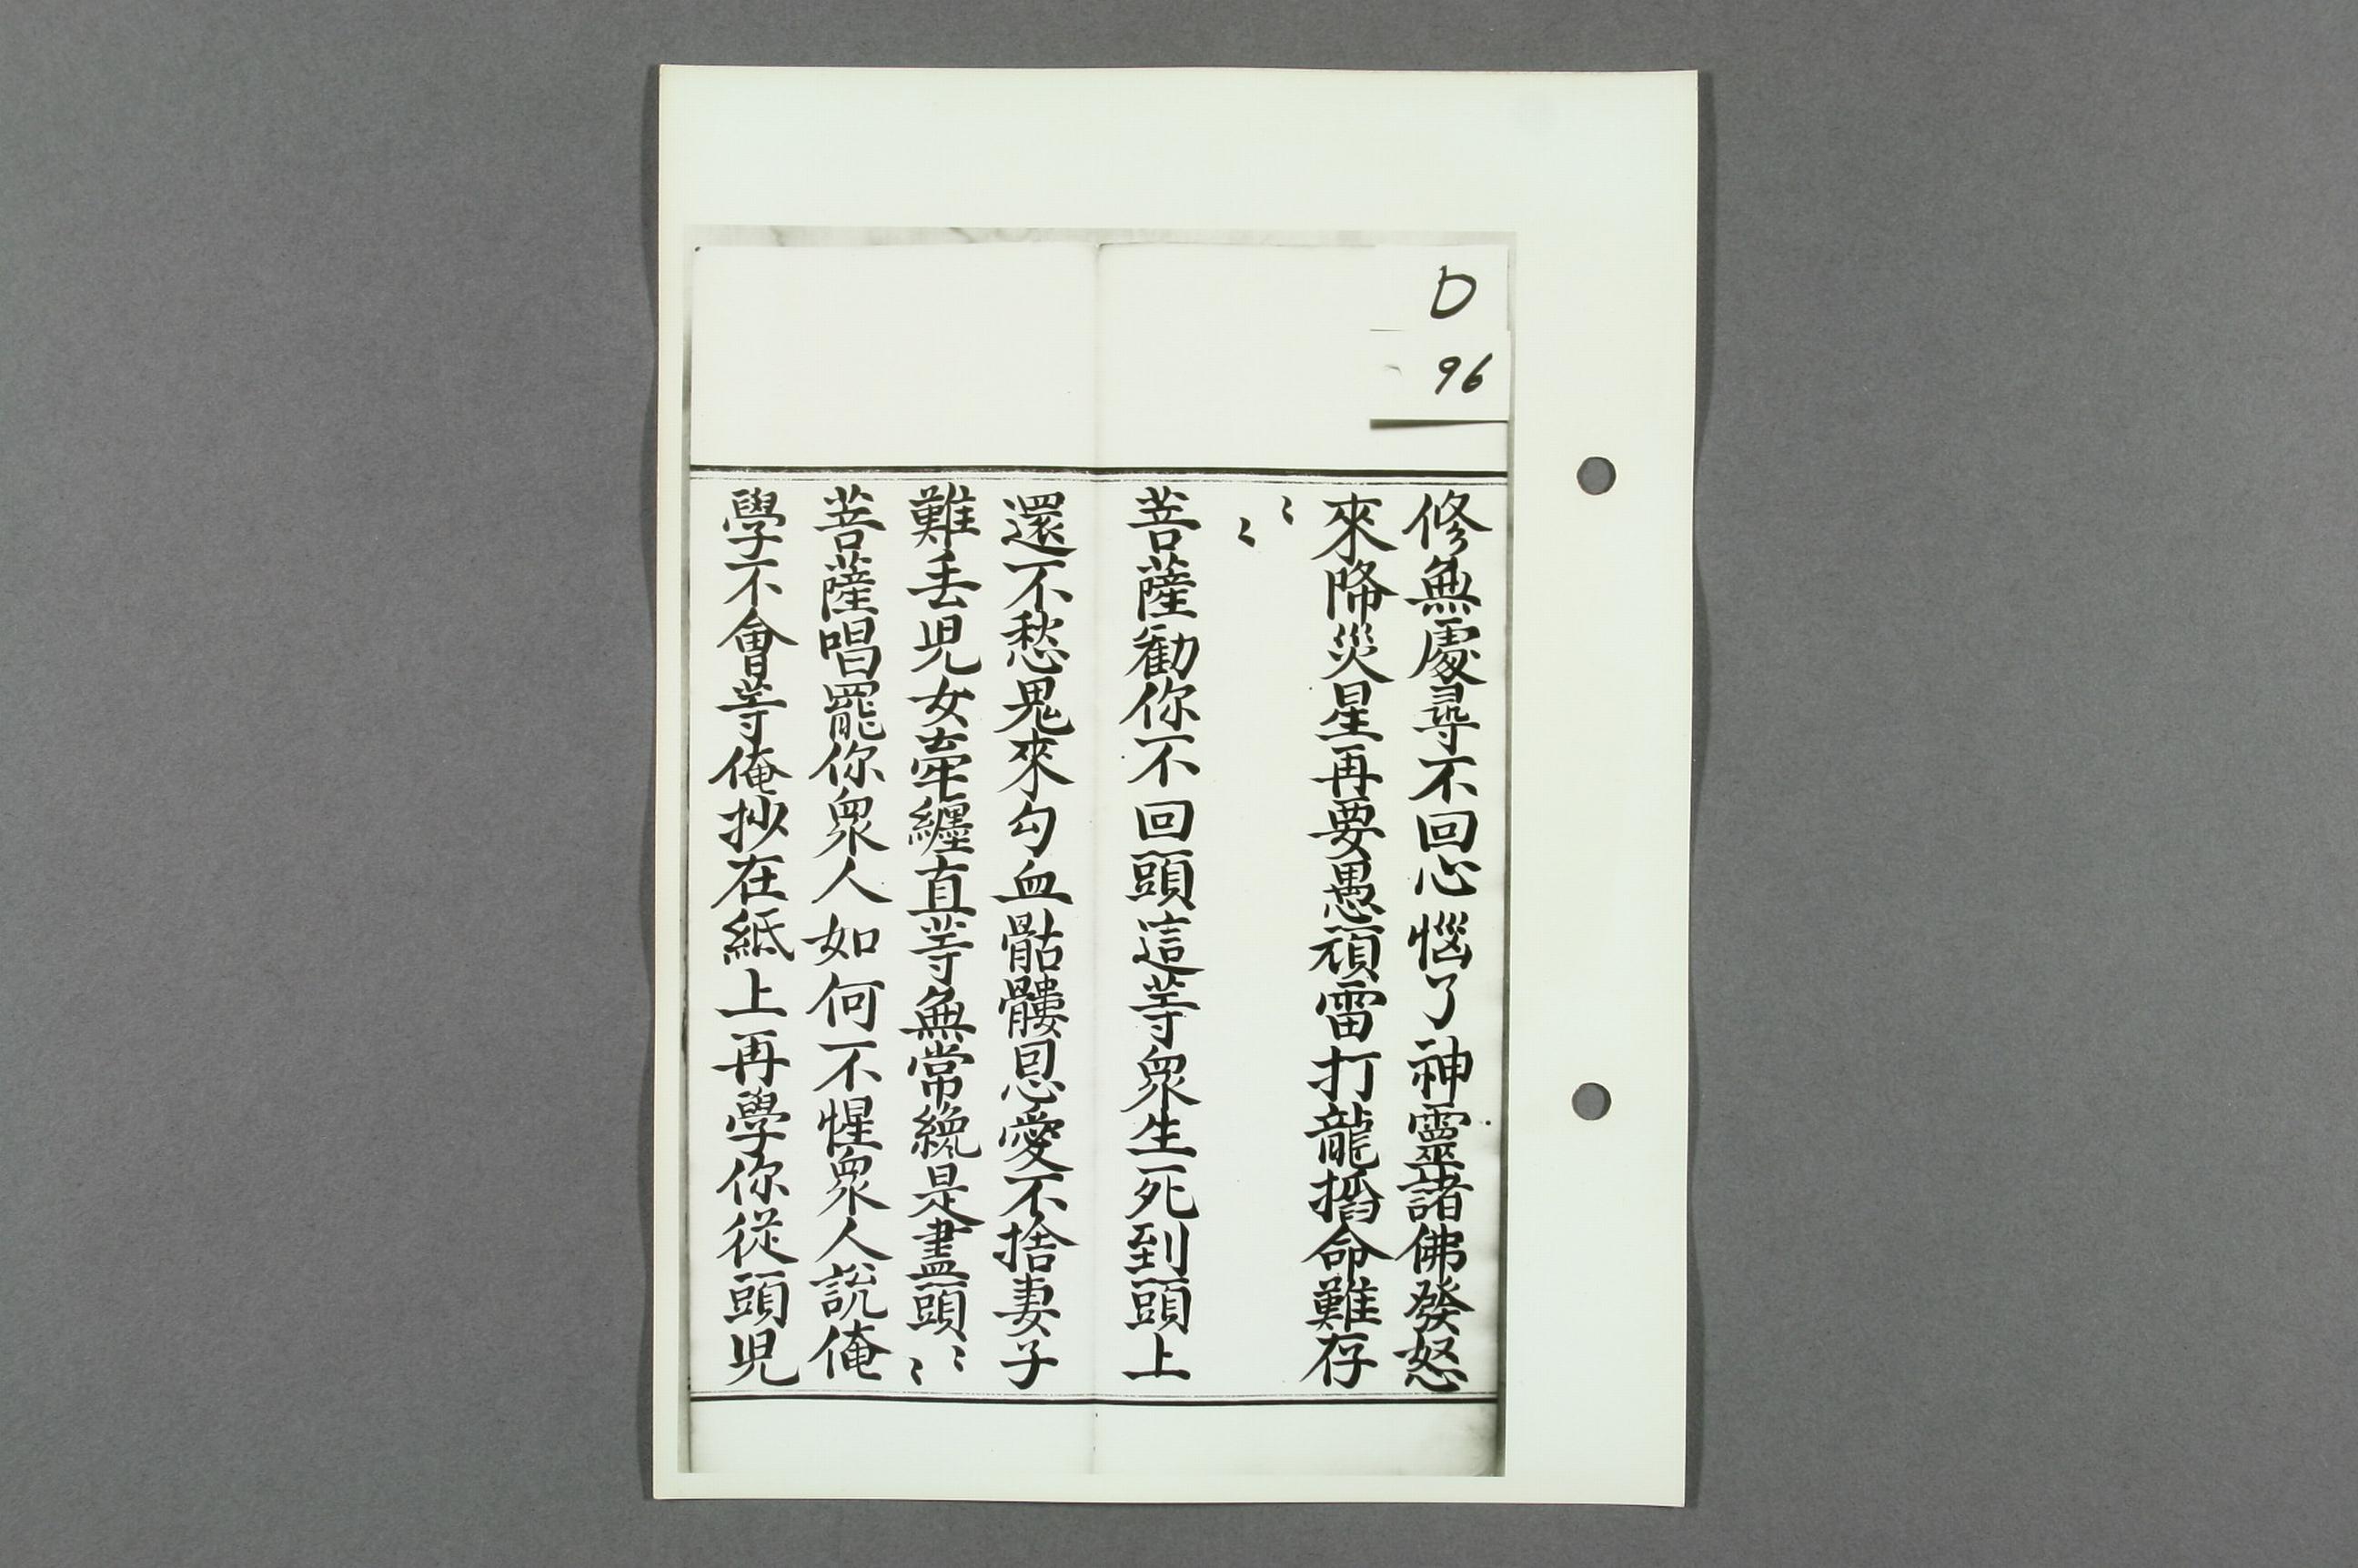 D
96
修無處尋不回心惱了神靈諸佛發怒
來降災星再要愚頑雷打龍搯命難存
〻〻
菩薩勸你不回頭這等衆生死到頭上
還不愁鬼來勾血骷髏恩愛不捨妻子
難丢兒女牽纏直等無常纔是盡頭〻〻
菩薩唱罷你衆人如何不惺衆人說俺
學不會等俺抄在紙上再學你從頭兒